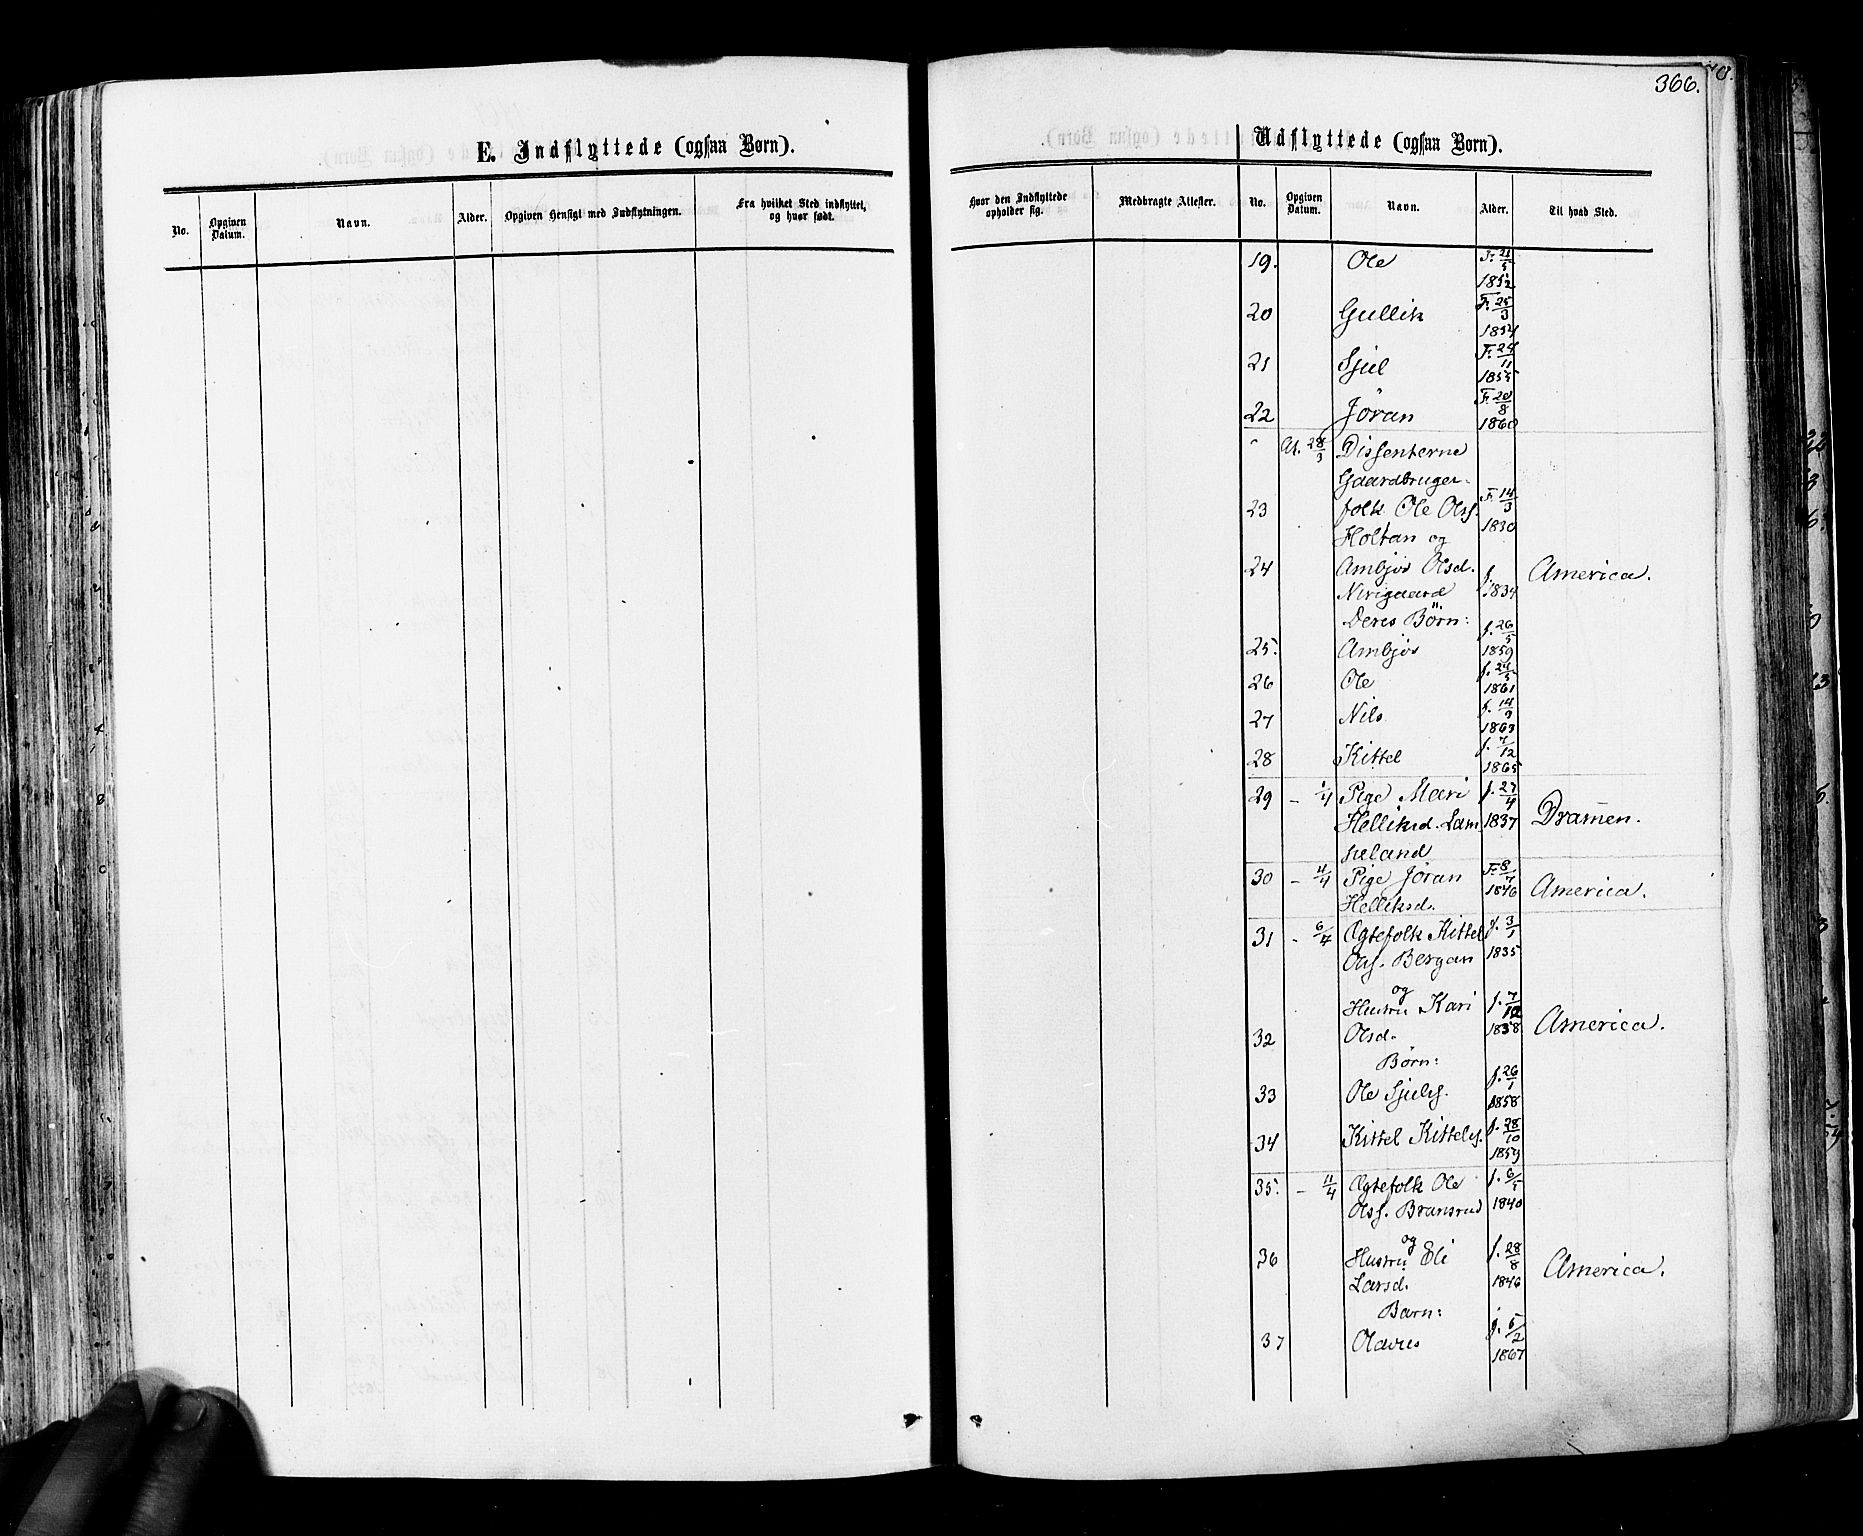 366.
E. Indflyttede (ogsaa Børn).
No.
Opgiven Datum.
Navn.
Alder.
Opgiven Hensigt med Indflytningen.
Fra hvilket Sted indflyttet, og hvor født.
Udflyttede (ogsaa Born).
Hvor den Indflyttede opholder sig.
Medbragte Attester.
No.
Opgiven Datum.
Navn.
Alder.
Til hvad Sted.
19. Ole F. 21/5 1852
20 Gullik F. 25/3 1854
21 Sjul F. 24/11 1855
22 Jöran F. 20/8 1860
" At. 28/3 Dissenterne
Gaardbruger-
23 folk Ole Olss. F. 14/3 1830
Holtan og
24 Ambjør Olsd. f. 1834 America.
Nirigaard
Deres Börn:
25. Ambjør f. 26/5 1859
26 Ole f. 24/5 1861
27 Nils f. 14/9 1863
28 Kittel f. 7/12 1865
29 - 1/4 Pige Mari f. 27/4
Helliksd. Lam 1837 Dramen.
heland
30 - 4/4 Pige Jöran F. 8/7 1840 America.
Helliksd.
31 - 6/4 Ægtefolk Kittel f. 3/1
Ols. Bergan 1835
og
Hustru Kari f. 7/12
32 Olsd. 1838 America.
Børn:
33 Ole Sjuls. f. 26/1 1858
34 Kittel Kittels. f. 28/10 1859
35. - 11/4 Ægtefolk Ole f. 6/5
Olss. Bransrud 1840
og
36 Hustru Eli f. 28/8
Larsd. 1846 America.
Barn:
37 Olavus f. 5/2 1867